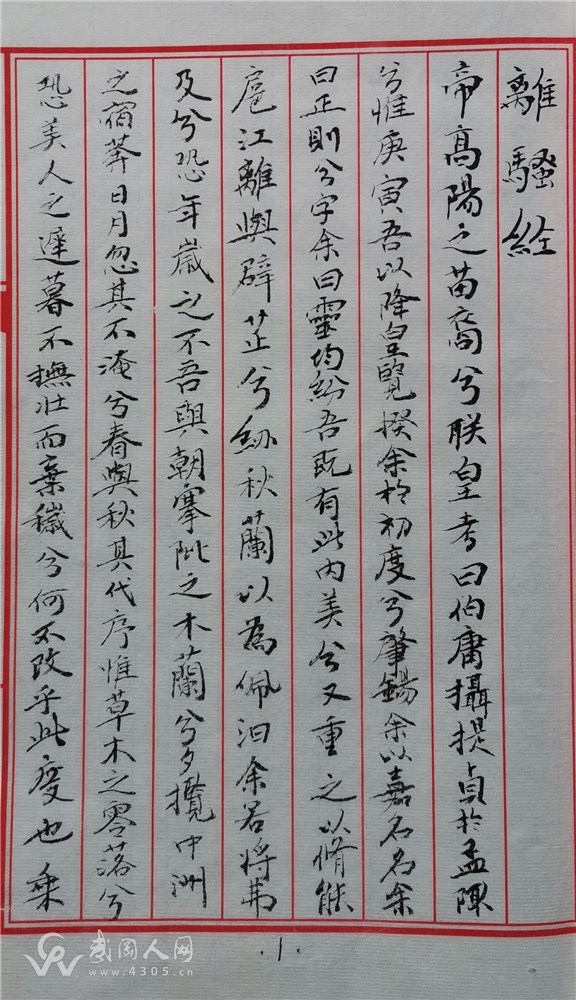 離騷經
帝高陽之苗裔兮朕皇考曰伯庸攝提貞於孟陬
兮惟庚寅吾以降皇覽揆余於初度兮肇錫余以嘉名名余
曰正則兮字余曰靈均紛吾既有此內美兮又重之以脩能
扈江離與辟芷兮紉秋蘭以為佩汩余若將弗
及兮恐年歲之不吾與朝搴阰之木蘭兮夕攬中洲
之宿莽日月忽其不淹兮春與秋其代序惟草木之零落兮
恐美人之遲暮不撫壯而棄穢兮何不改乎此度也乘
·1·
武冈人网
www.4305.cn